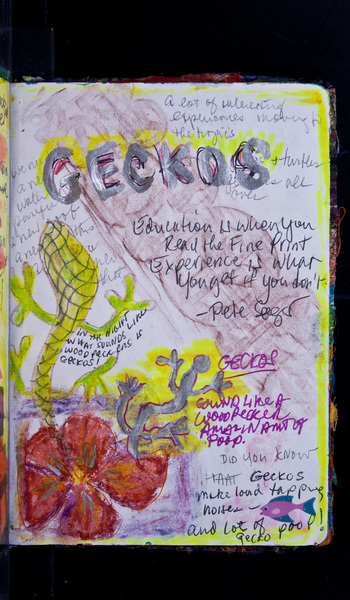 A lot of interesting
experiences moving to
the tropics
GECKOS
+ turtles
all
over
Education is when you
Read the Fine Print
Experience is what
You get if you don't.
- Pete Seeger
IN THE NIGHT
WHAT SOUNDS LIKE
WOODPECKERS IS
GECKOS!
GECKOS
SOUND LIKE A
WOODPECKER
AMAZIN AMT OF
POOP.
DID YOU KNOW
THAT GECKOS
make loud tapping
noises -
and lot of poop!
gecko